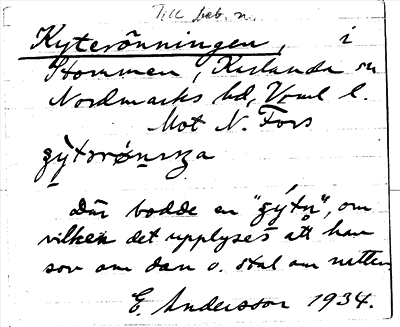 Till beb. n.
Kyterönningen, i
Stommen, Karlanda sn
Nordmarks hd, Vrml l.
Mot N. Fors
Där bodde en "gýtu", om
vilken det upplyses att han
sov om dan o. stal om natten
E. Andersson 1934.